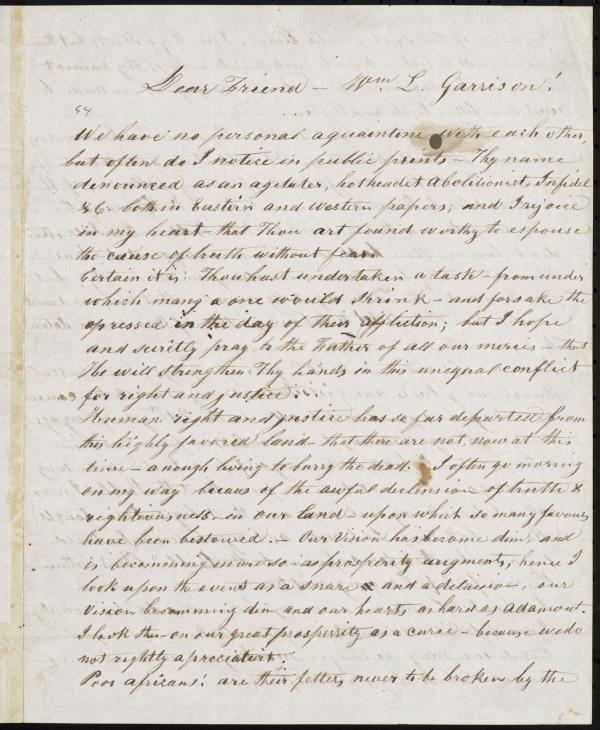 Dear Friend – Wm L. Garrison!
We have no personal aquaintine with each other,
but often do I notice in public prints – Thy name
denounced as an agetater, hotheadet Abolitionist, Infidel
&C. both in Eastern and Western papers; and I rejoice
in my heart – that Thou art found worthy to espouse
the cause of truth without fear.
Certain it is Thou hast undertaken a task – from under
which many a one would shrink – and forsake the
opressed in the day of their affliction; but I hope
and secritly pray to the Father of all our mercies – that
He will strengthen Thy hands in this unequal conflict
for right and justice.
Human right and justice has so far departed from
this highly favored land – that there are not, now at this
time – anough living to burry the dead. I often go morning
on my way becaus of the awful declension of truth &
rightiousness – in our land – upon which so many favours
have been bestowed. – Our vision has become dim, and
is becomming more so – as prosperity augments, hence I
look upon the event as a snare and a delusion, our
vision becomming dim and our hearts as hard as adamant.
I look then on our great prosperity as a curse – because we do
not rightly apreciate it.
Poor africans! are their fetters never to be broken by the